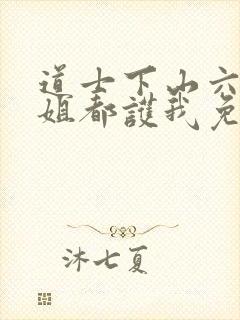 道士下山六
姐都護我免
沐七夏